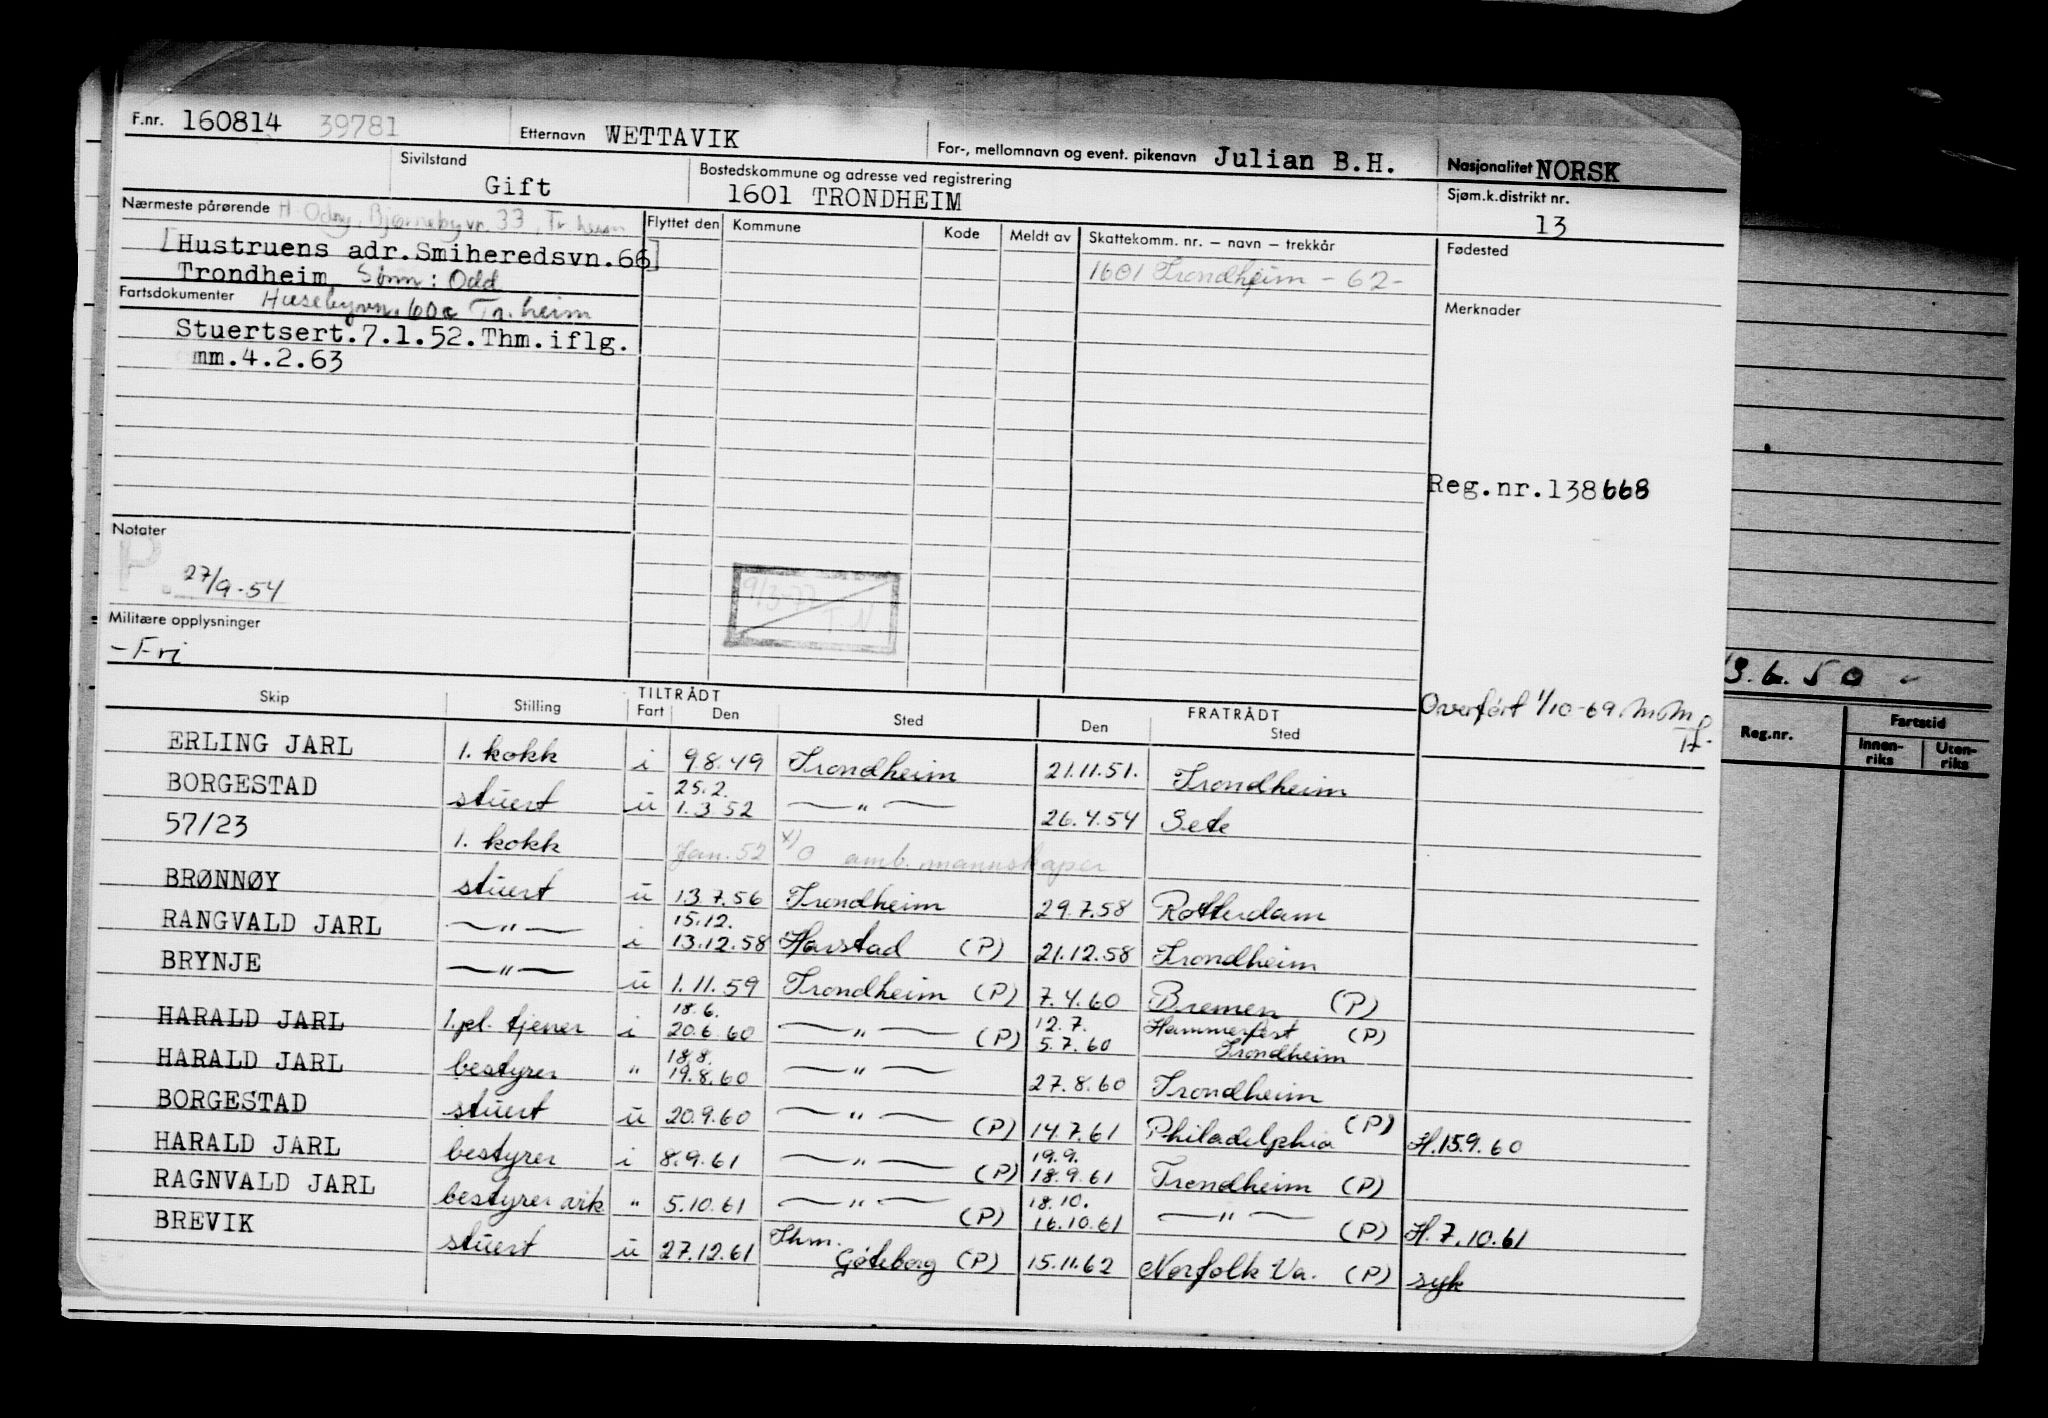 F.nr. 160814 39781 Etternavn WETTAVIK For-, mellomnavn og event. pikenavn Julian B.H. Nasjonalitet NORSK
Sivilstand Gift Bostedskommune og adresse ved registrering 1601 TRONDHEIM Sjøm.k.distrikt nr. 13
Nærmeste pårørende Bjørnebyvn. 33, Tr.heim Flyttet den Kommune Kode Meldt av Skattekomm. nr. – navn – trekkår Fødested
[Hustruens adr.Smiheredsvn.66] 1601 Trondheim - 62 -
Trondheim Sønn: Odd
Fartsdokumenter Husebyvn. 60c Tr.heim Merknader
Stuertsert.7.1.52.Thm.iflg.
mm.4.2.63
Reg.nr.138668
Notater
P. 27/9-54
9/3-77
T.N
Militære opplysninger
- Fri
13.6.50 -
Overført 1/10-69 M.M.
Skip Stilling TILTRÅDT Fart Den Sted FRATRÅDT Den Sted
Reg.nr. Fartstid Innen-riks Uten-riks
ERLING JARL 1. kokk i 9.8.49 Trondheim 21.11.51. Trondheim
25.2.
BORGESTAD stuert u 1.3.52 — " — 26.4.54 Sete
57/23 1. kokk Jan. 52 x) O amb. mannskaper
BRØNNØY stuert u 13.7.56 Trondheim 29.7.58 Rotterdam
15.12.
RANGVALD JARL — " — i 13.12.58 Harstad (P) 21.12.58 Trondheim
BRYNJE — " — u 1.11.59 Trondheim (P) 7.4.60 Bremen (P)
18.6. 12.7. Hammerfest (P)
HARALD JARL 1.pl. tjener i 20.6.60 — " — (P) 5.7.60 Trondheim
18.8.
HARALD JARL bestyrer " 19.8.60 — " — 27.8.60 Trondheim
BORGESTAD stuert u 20.9.60 — " — (P) 14.7.61 Philadelphia (P) H.15.9.60
19.9.
HARALD JARL bestyrer i 8.9.61 — " — (P) 18.9.61 Trondheim (P)
18.10.
RAGNVALD JARL bestyrer ark " 5.10.61 — " — (P) 16.10.61 — " — (P) H.7.10.61
Thm.
BREVIK stuert u 27.12.61 Göteborg (P) 15.11.62 Norfolk Va. (P) syk